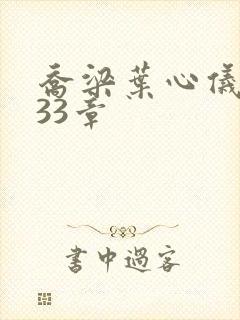 乔梁葉心儀
33章
書中過客